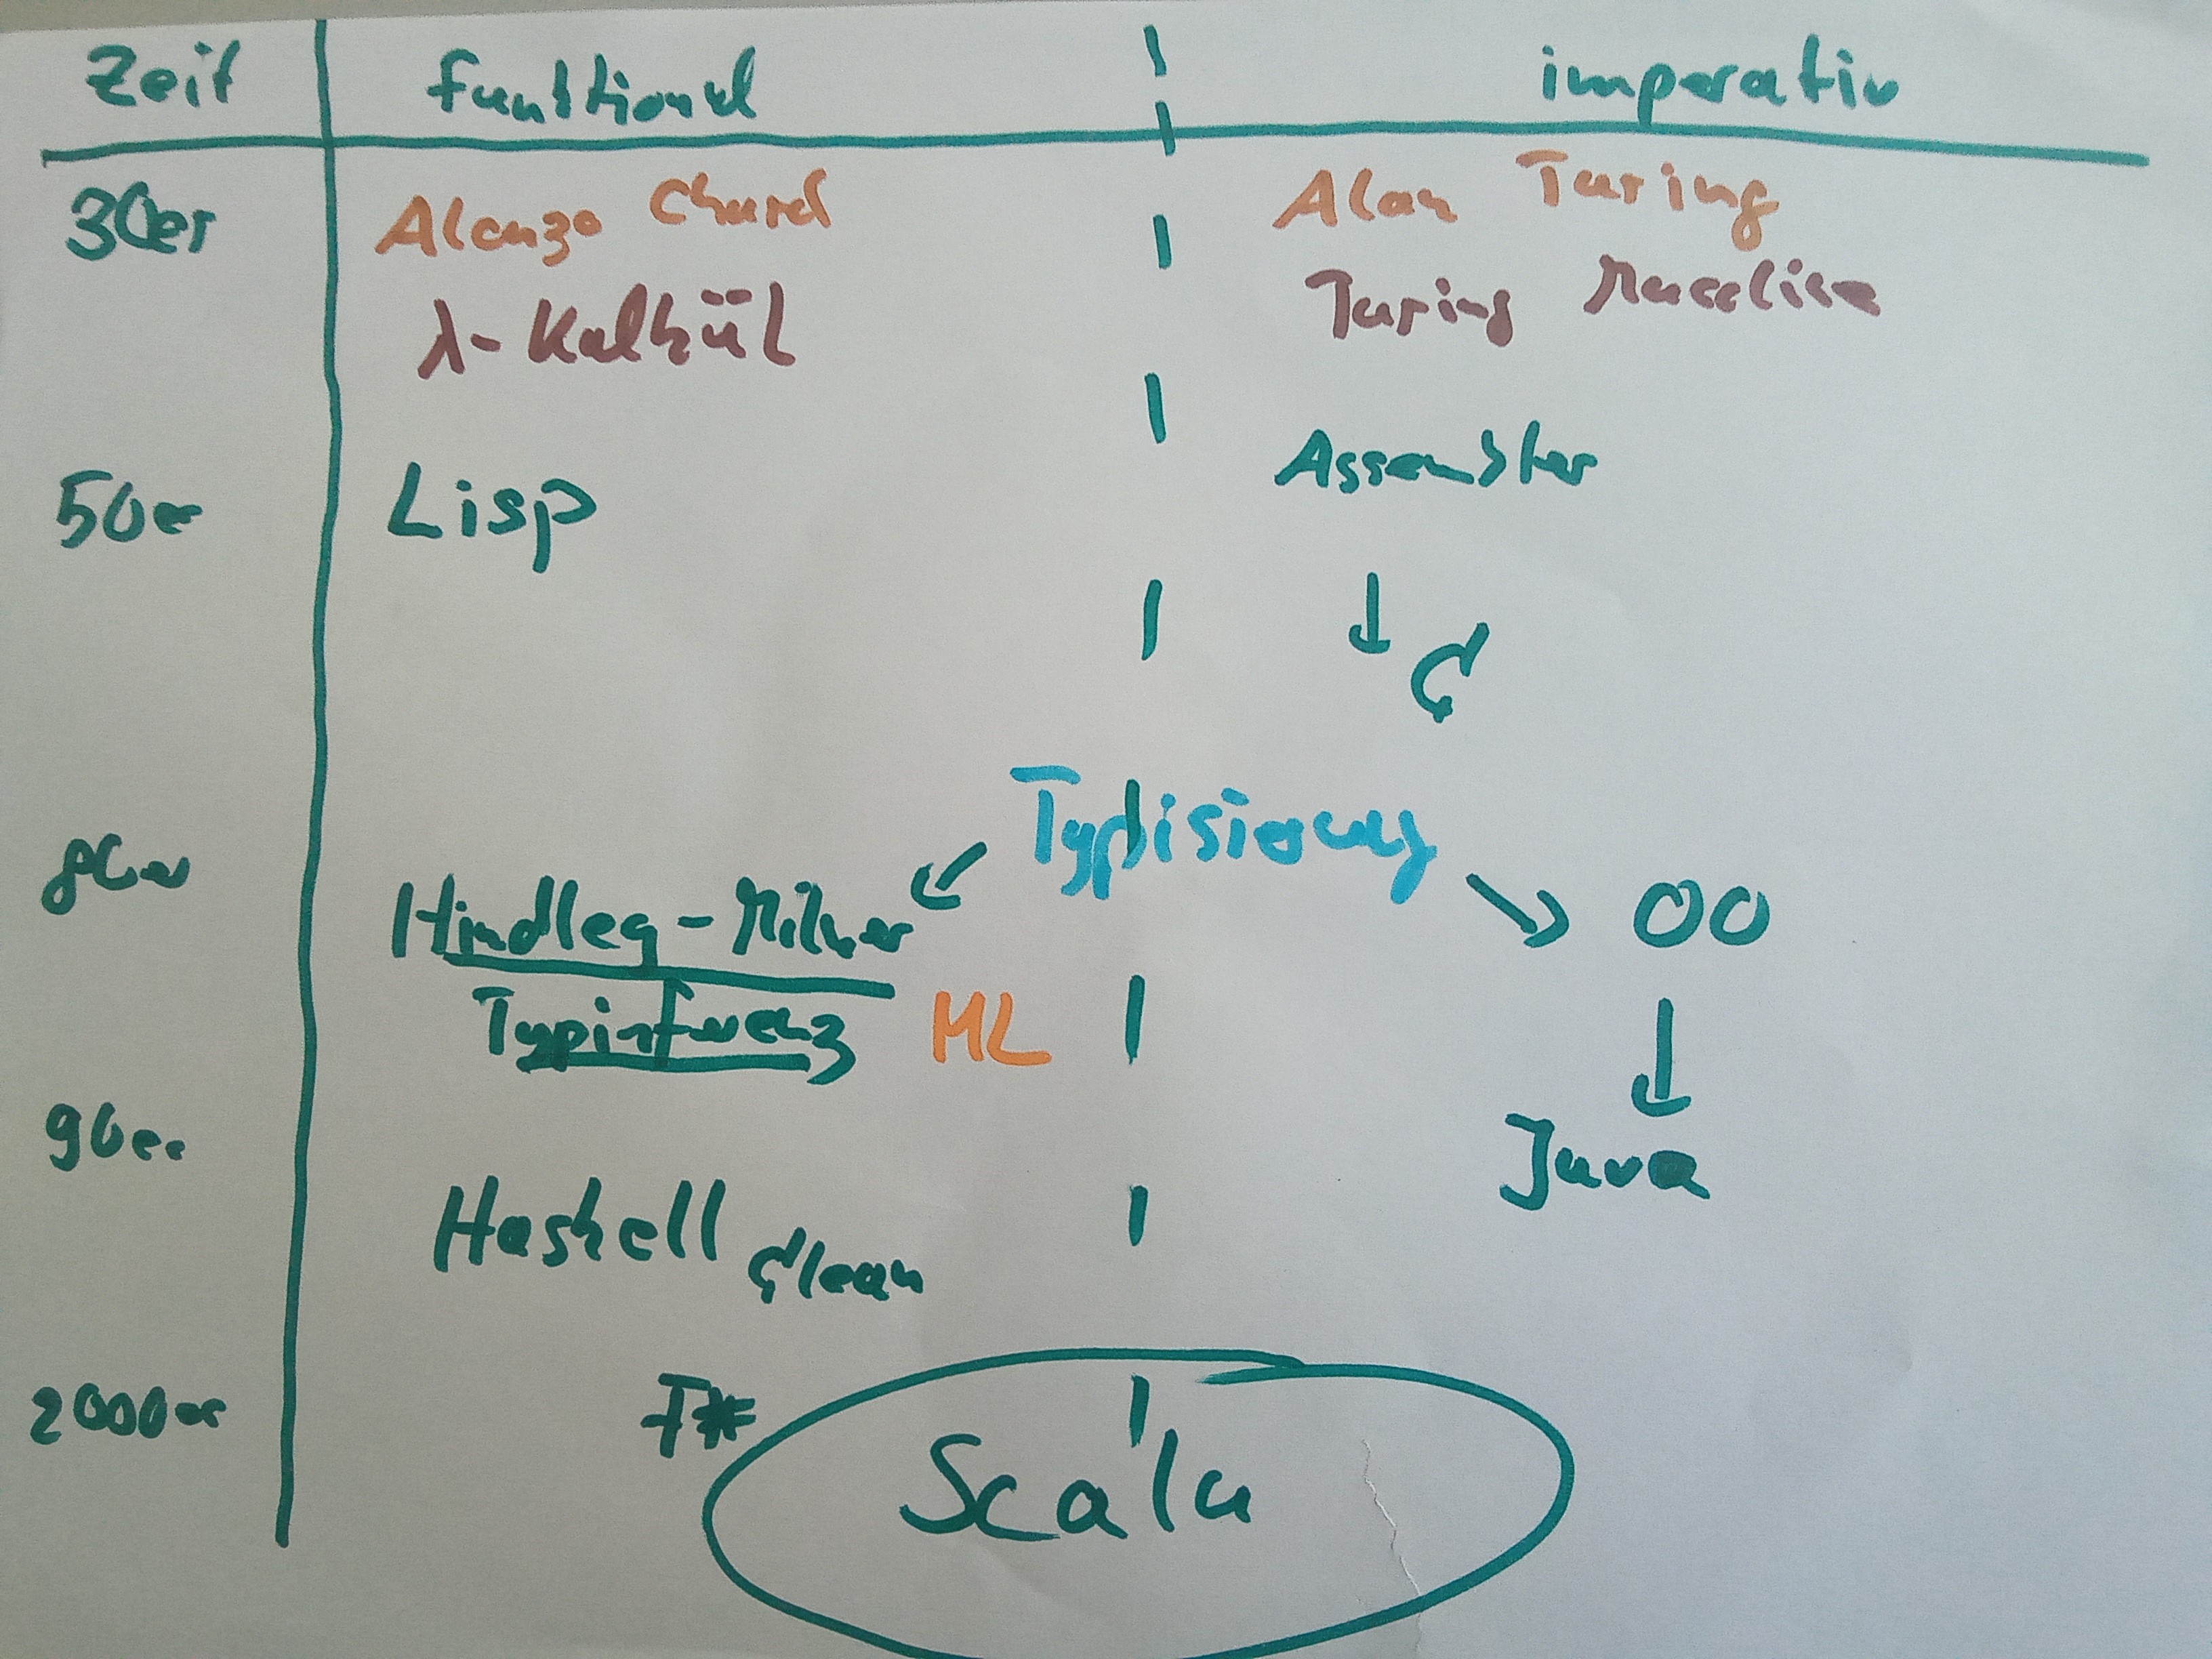 Zeit funktional imperativ
30er Alonzo Church Alan Turing
λ-Kalkül Turing Maschine
50er Lisp Assembler
C
Typisierung
80er Hindley-Milner OO
Typinferenz ML
90er Java
Haskell Clean
2000er F#
Scala